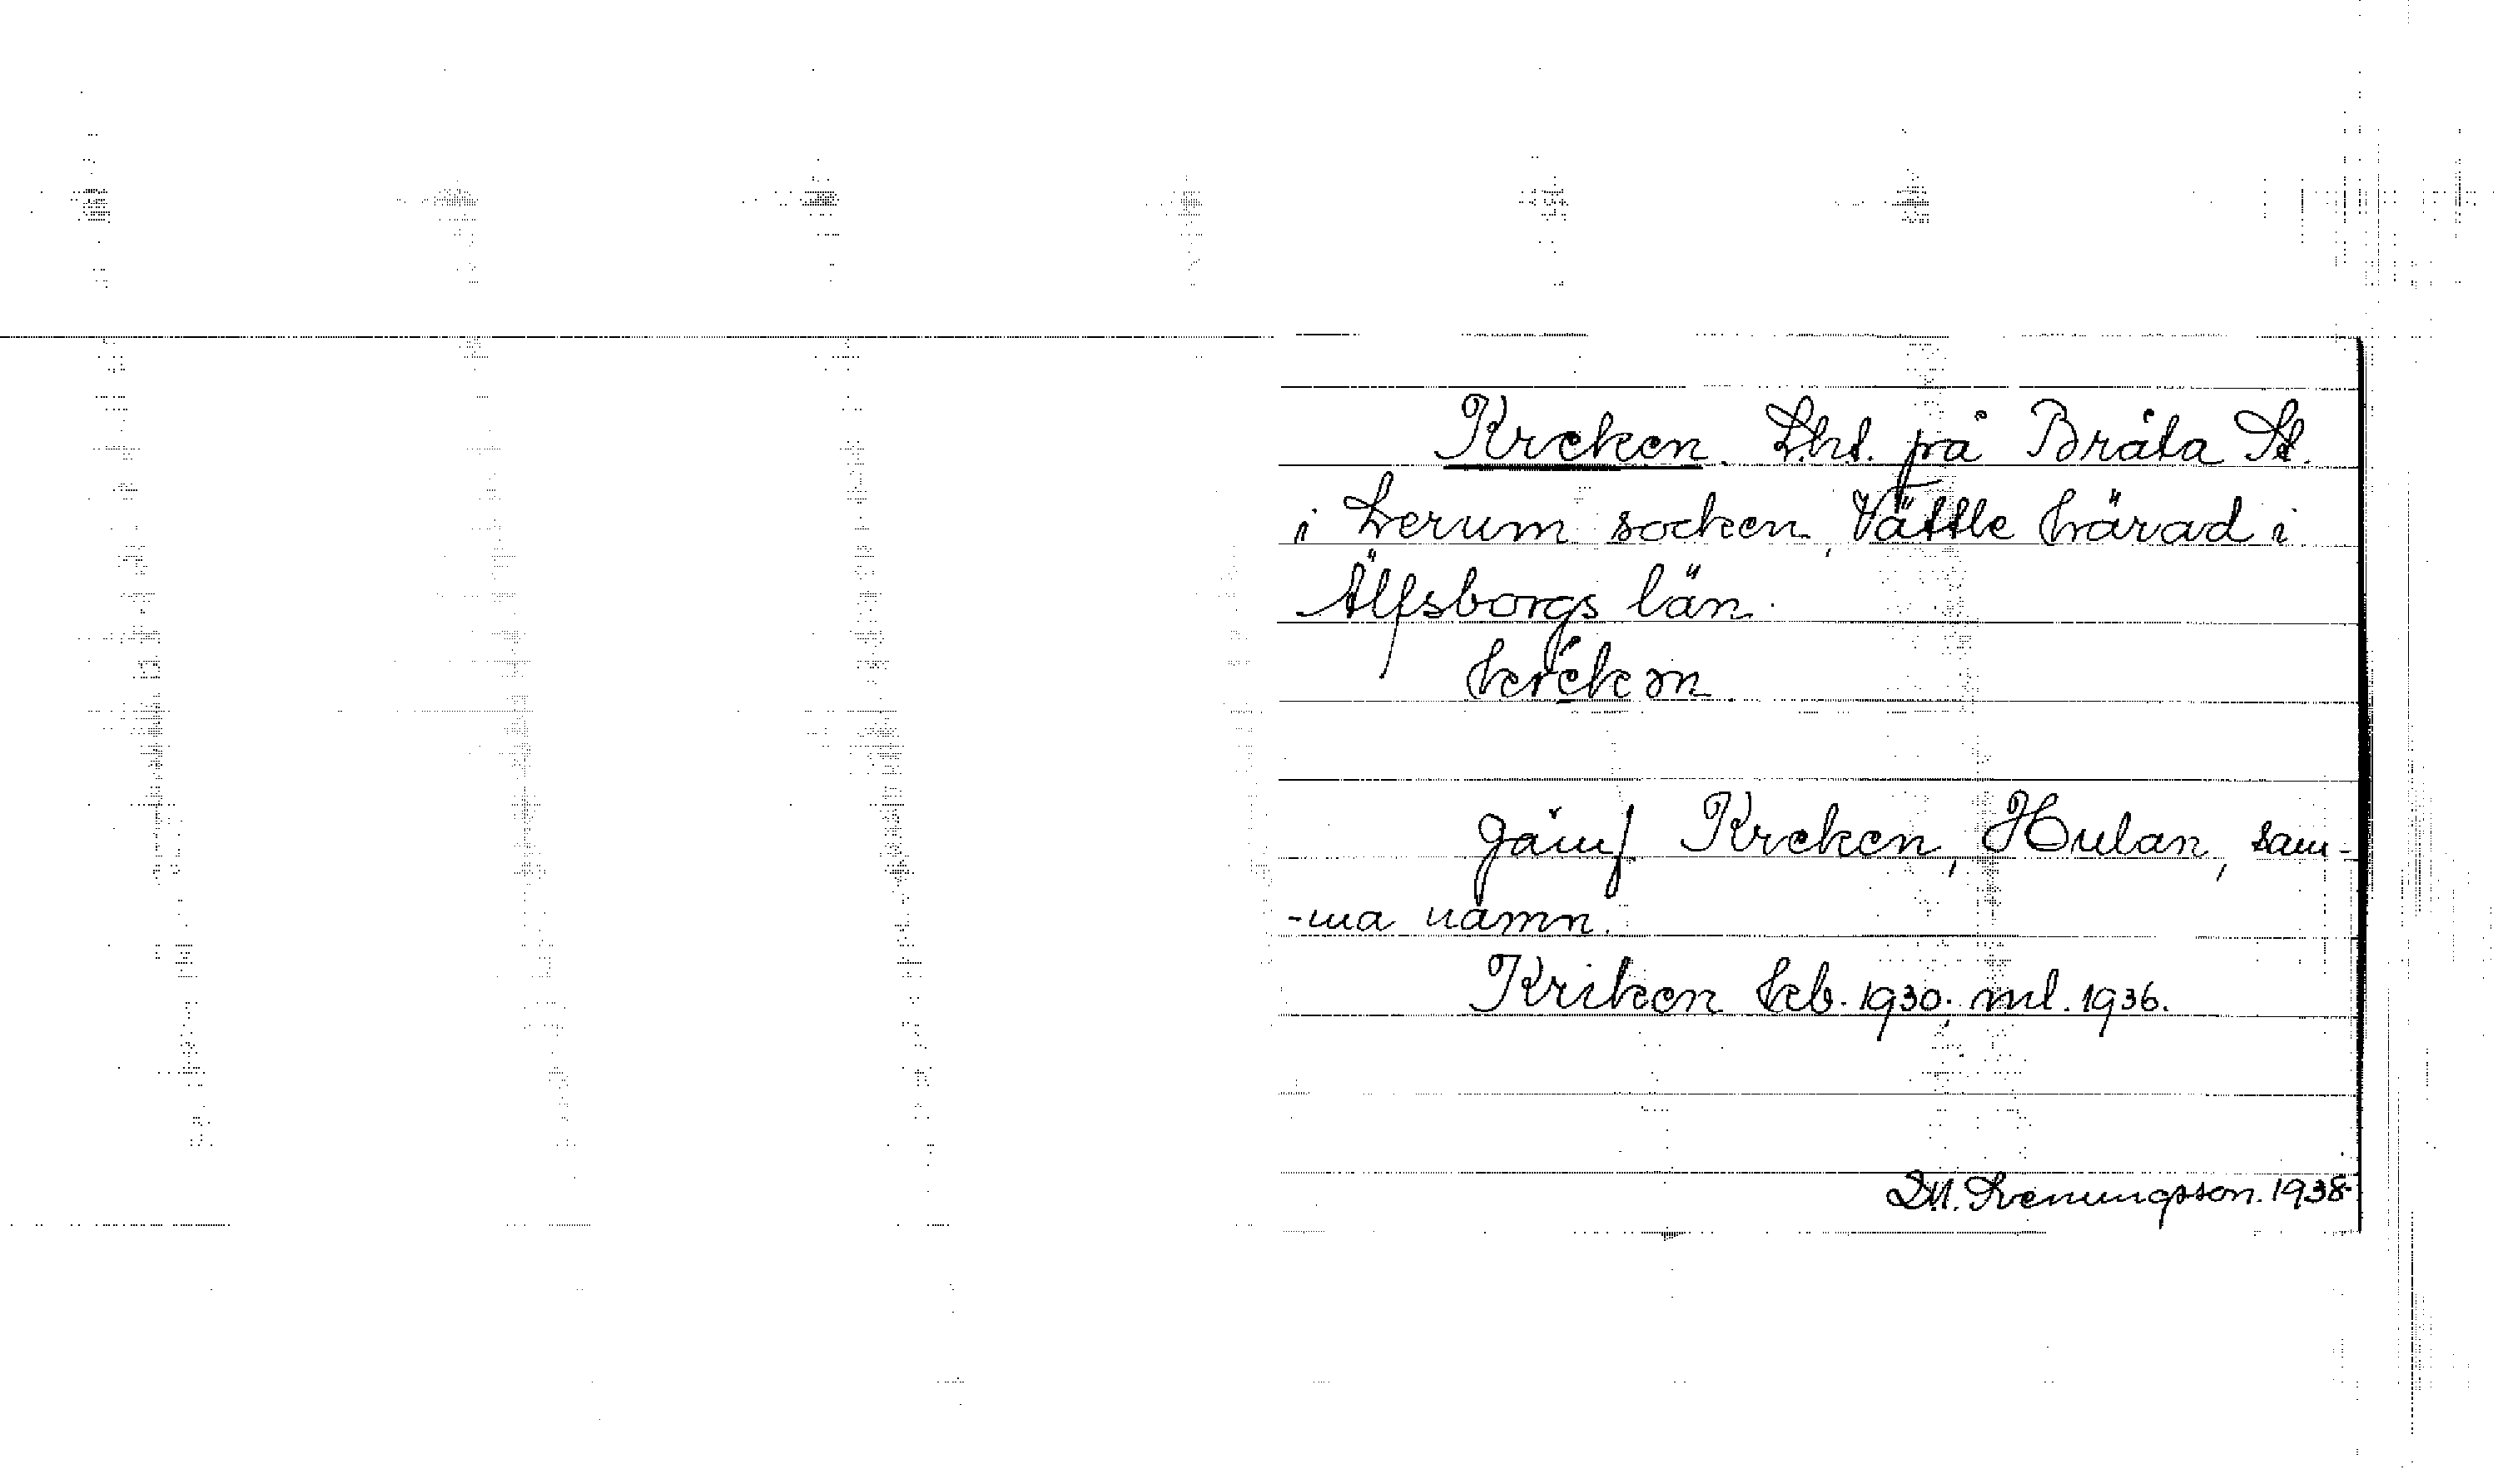 Kreken. Lht. på Bråta St.
i Lerum socken, Vättle härad i
Älfsborgs län.
krekən
Jämf. Kreken, Hulan, sam-
-ma namn.
Kriken kb. 1930; ml. 1936.
D.M. Svenungsson. 1938